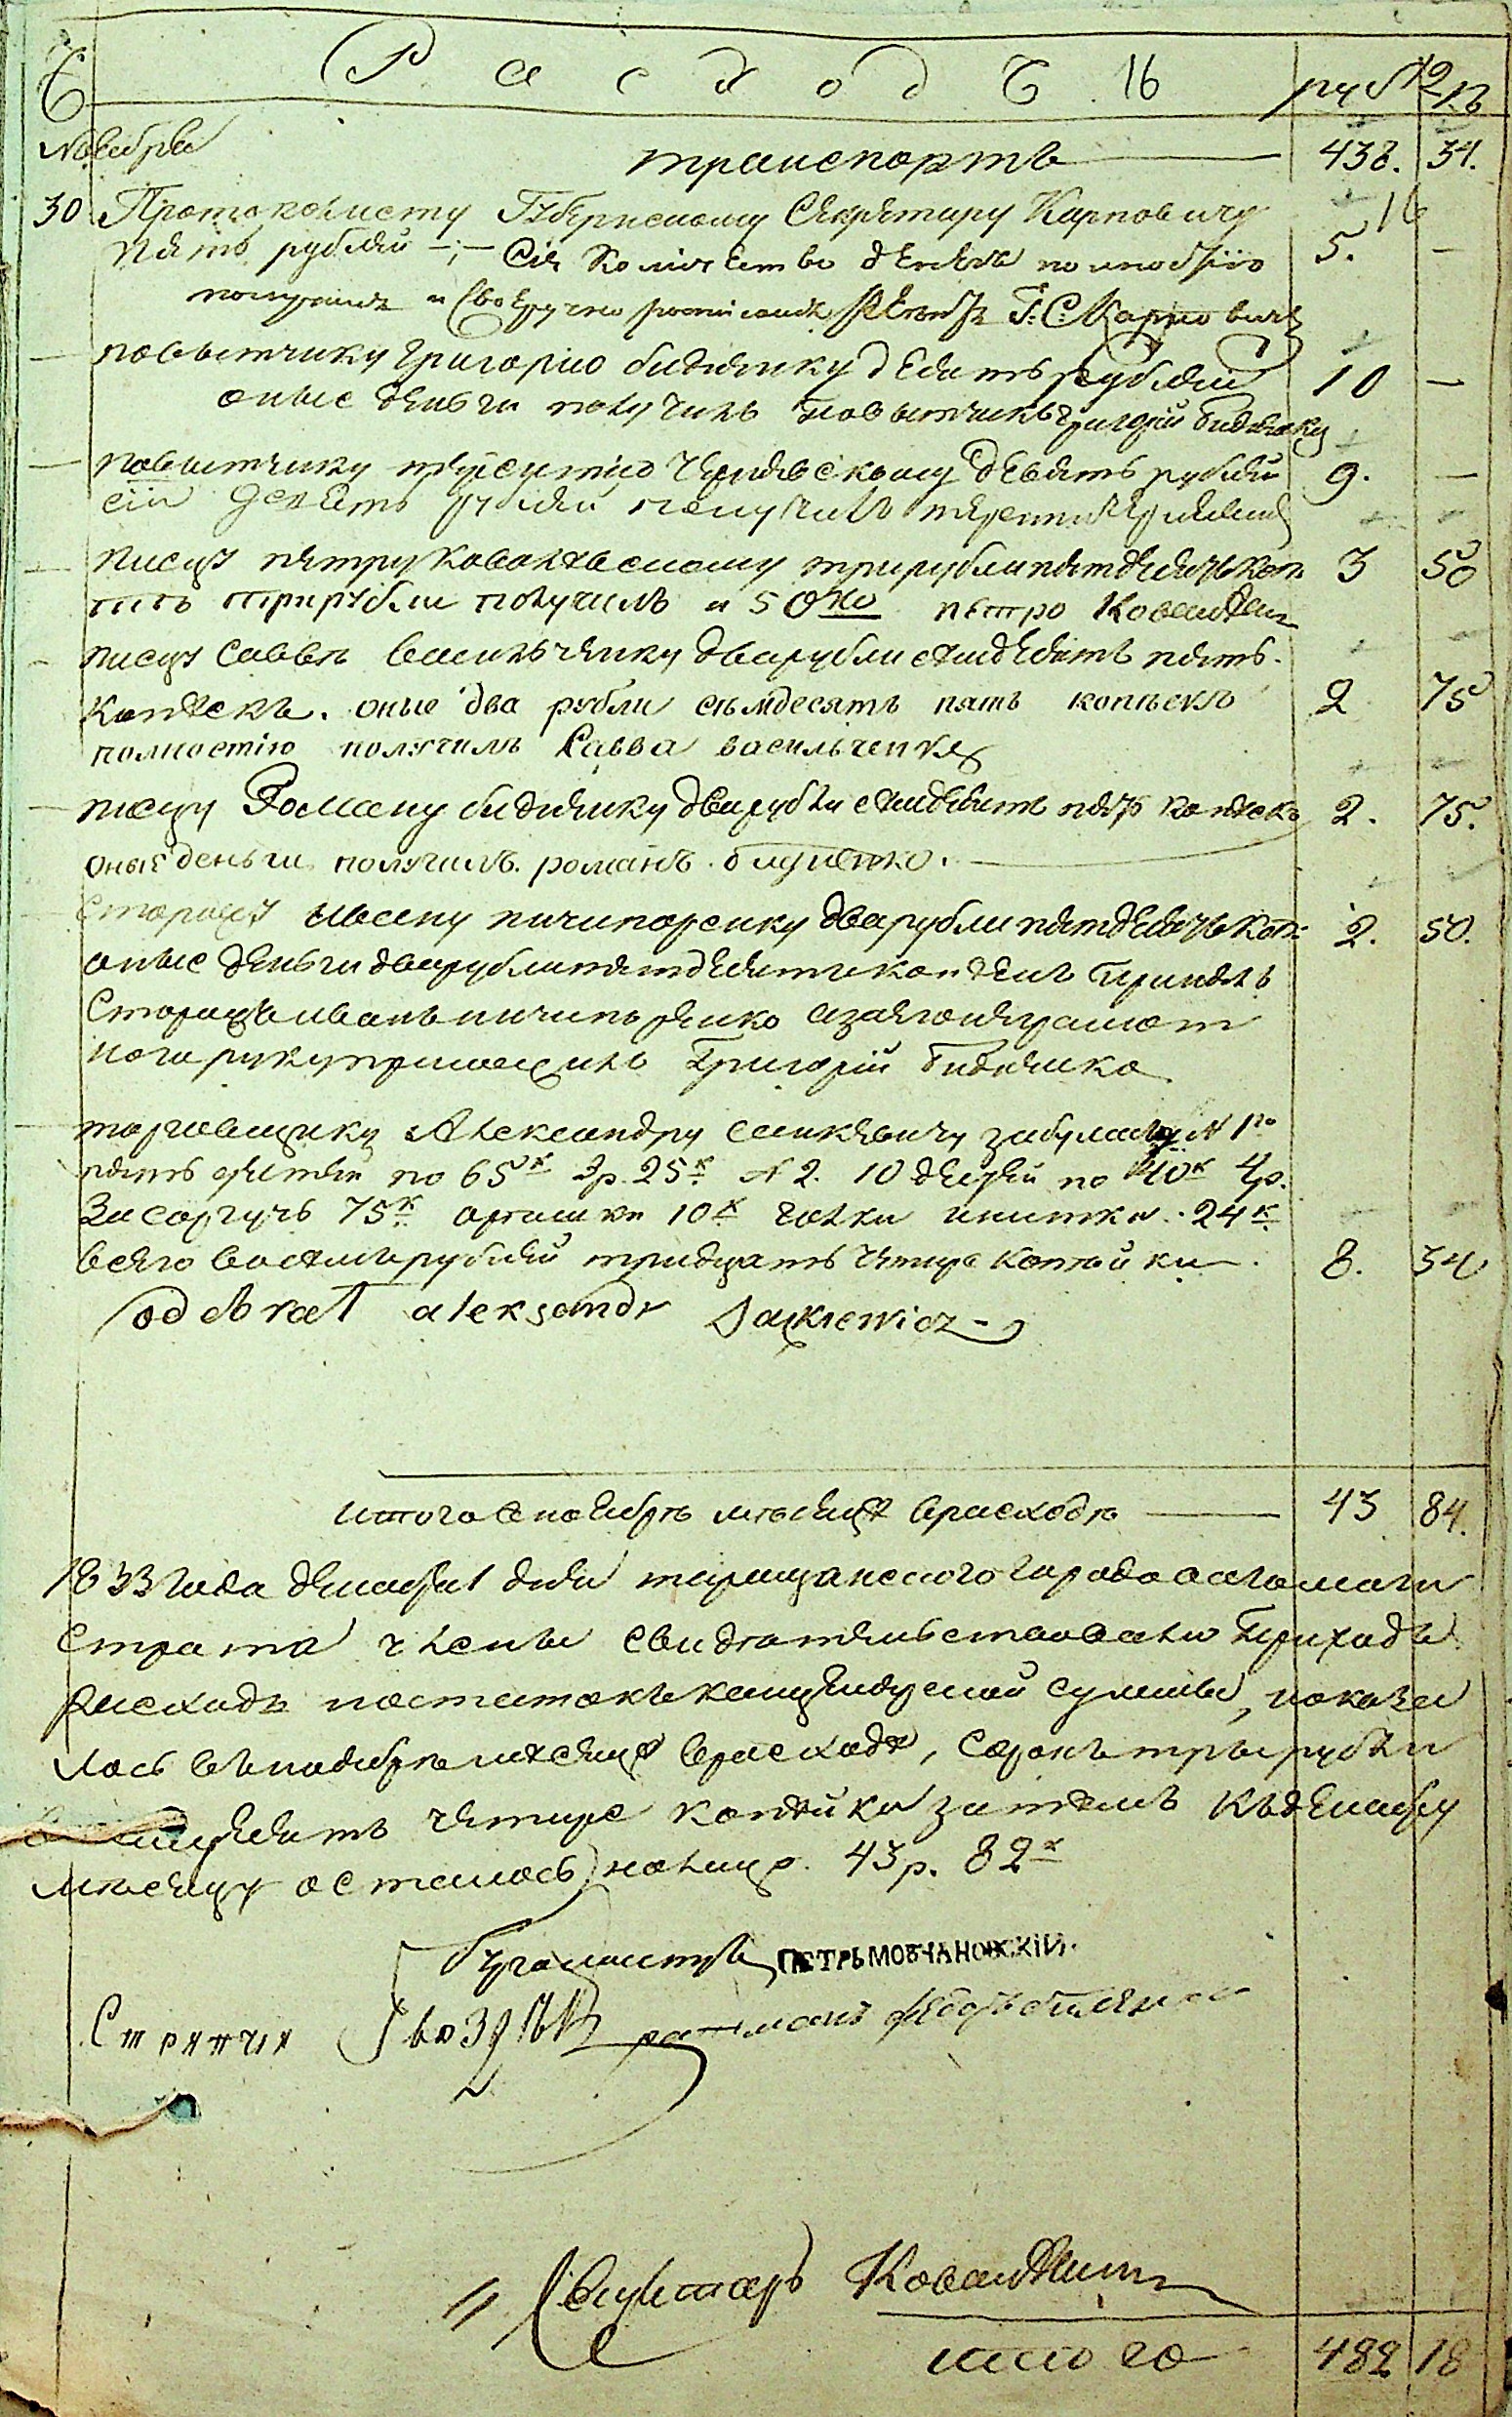 Расходъ 16 руб ко
Ноября
транспортъ 438. 34.
30 Протоколисту Губернскому Секретару Карповичу
пять рублей -;- Сіе Количество денегъ полностію 5. —
получилъ и Своеручно росписался Г: С: Карповичъ
повытчику Григорію бидненку десять рублей 10 —
оные деньги получилъ повытчикъ григорій бидненко
повытчику терентію Чернявскому девять рублей 9. —
сіи девять рублей получилъ терентій Чернявскій
писцу петру Ковалевскому три рубли пятдесятъ коп: 3 50
три рубли получилъ и 50 ко петро Ковалевскій
писцу Саввѣ Васильченку два рубли семдесятъ пять
копѣекъ. оные два рубли семдесятъ пять копѣекъ 2 75
полностію получилъ Савва васильченко
писцу Роману бидненку два рубли семдесятъ пять копѣекъ 2. 75.
оные деньги получилъ романъ бидненко.
Сторожу ивану ничипоренку два рубли пятдесятъ коп: 2. 50.
оные деньги два рубли пятдесятъ копѣекъ принялъ
Сторожъ иванъ ничипоренко а за его неграмот
ного руку приложилъ Григорій бидненко
торговщику Александру Саикевичу за бумагу N 1го
пять дестей по 65к 3р. 25к. N 2. 10 дестей по 40к 4р.
За сургучъ 75к. 10к голки и нитки. 24к.
всего восемь рублей тридцать четыре копѣйки 8. 34
odebrał alexsandr Saykiewicz
итого в ноябрѣ мѣсяцѣ в расходѣ 43 84.
1833 года декабря 1 дня таращанского городового маги
страта члены свидѣтельствовали приходъ
расходъ и остатокъ канцелярской суммы, показа
лось въ ноябрѣ мѣсяцѣ в расходѣ, Сорокъ три рубли
восемдесятъ четыре копѣйки затѣмъ къ декабру
мѣсяцу осталось налицо. 43р. 82к
бургомистръ ПЕТРЪ МОВЧАНОВСКІЙ.
Стряпчій ратманъ
Секретаръ Ковалевскій
итого 482 18